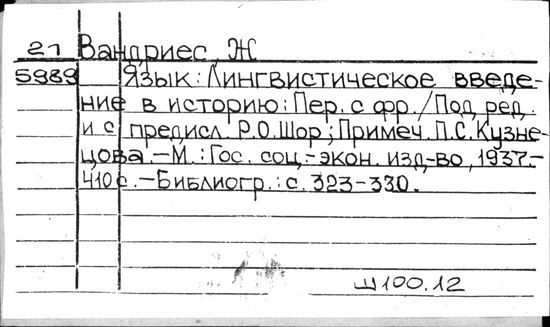 21 Вандриес, Ж
5989 Язык: Лингвистическое введе-
ние в историю: Пер. с фр./Под ред.
и с предисл. Р.О.Шор; Примеч. П.С.Кузне-
цова.—М.: Гос. соц.-экон. изд-во, 1937.-
410 с.—Библиогр.: с. 323-330.
Ш100.12